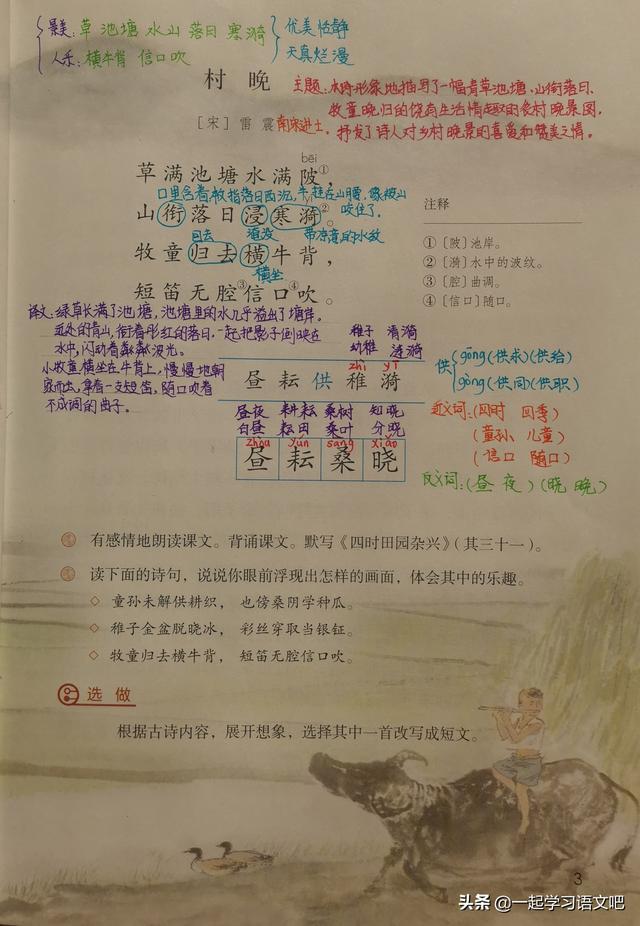 景美:草 池塘 水 山 落日 寒漪 优美恬静
人乐:横牛背 信口吹 天真烂漫
村晚
主题:水时形象地描写了一幅青草池塘、山衔落日、
牧童晚归的饶有生活情趣的农村晚景图,
抒发了诗人对乡村晚景的喜爱和赞美之情。
[宋] 雷 震 南宋进士
bēi
草满池塘水满陂①,
口里含着,被指落日西沉,半挂在山腰,像被山
咬住了。
山衔落日浸寒漪②。
回去 淹没 带凉意的水纹
牧童归去横牛背,
横坐
短笛无腔③信口④吹。
注释
①〔陂〕池岸。
②〔漪〕水中的波纹。
③〔腔〕曲调。
④〔信口〕随口。
译文:绿草长满了池塘,池塘里的水几乎溢出了塘岸。
远处的青山,衔着彤红的落日,一起把影子倒映在
水中,闪动着粼粼波光。
小牧童横坐在牛背上,慢慢地朝
家而去,拿着一支短笛,随口吹着
不成调的曲子。
稚子 清漪
幼稚 涟漪
zhì yī
昼 耘 供 稚 漪
供 gōng(供求)(供给)
gòng(供同)(供职)
昼夜 耕耘 桑树 知晓
白昼 耘田 桑叶 分晓
zhòu yún sāng xiǎo
昼 耘 桑 晓
近义词:(四时 四季)
(童孙、儿童)
(信口 随口)
反义词:(昼 夜)(晓 晚)
有感情地朗读课文。背诵课文。默写《四时田园杂兴》(其三十一)。
读下面的诗句,说说你眼前浮现出怎样的画面,体会其中的乐趣。
◇ 童孙未解供耕织,也傍桑阴学种瓜。
◇ 稚子金盆脱晓冰,彩丝穿取当银钲。
◇ 牧童归去横牛背,短笛无腔信口吹。
选做
根据古诗内容,展开想象,选择其中一首改写成短文。
3
头条 @一起学习语文吧